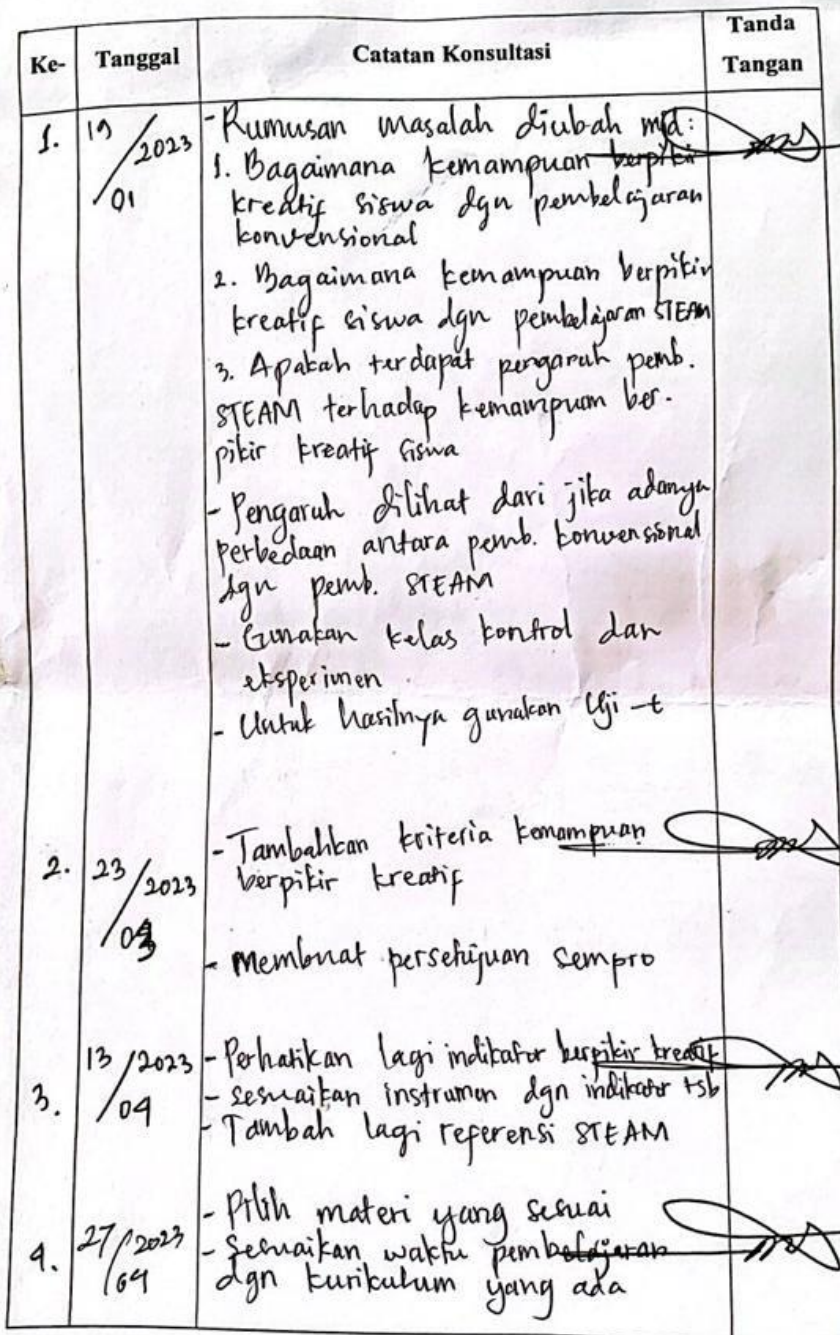 Ke- Tanggal Catatan Konsultasi Tanda Tangan
1. 19/01 2023 - Rumusan masalah diubah mjd:
1. Bagaimana kemampuan berpikir
kreatif siswa dgn pembelajaran
konvensional
2. Bagaimana kemampuan berpikir
kreatif siswa dgn pembelajaran STEAM
3. Apakah terdapat pengaruh pemb.
STEAM terhadap kemampuan ber-
pikir kreatif siswa
- Pengaruh dilihat dari jika adanya
perbedaan antara pemb. konvensional
dgn pemb. STEAM
- Gunakan kelas kontrol dan
eksperimen
- Untuk hasilnya gunakan Uji-t
2. 23/03 2023 - Tambahkan kriteria kemampuan
berpikir kreatif
- Membuat persetujuan sempro
3. 13/04 2023 - Perhatikan lagi indikator berpikir kreatif
- sesuaikan instrumen dgn indikator tsb
- Tambah lagi referensi STEAM
4. 27/04 2023 - Pilih materi yang sesuai
- Sesuaikan waktu pembelajaran
dgn kurikulum yang ada